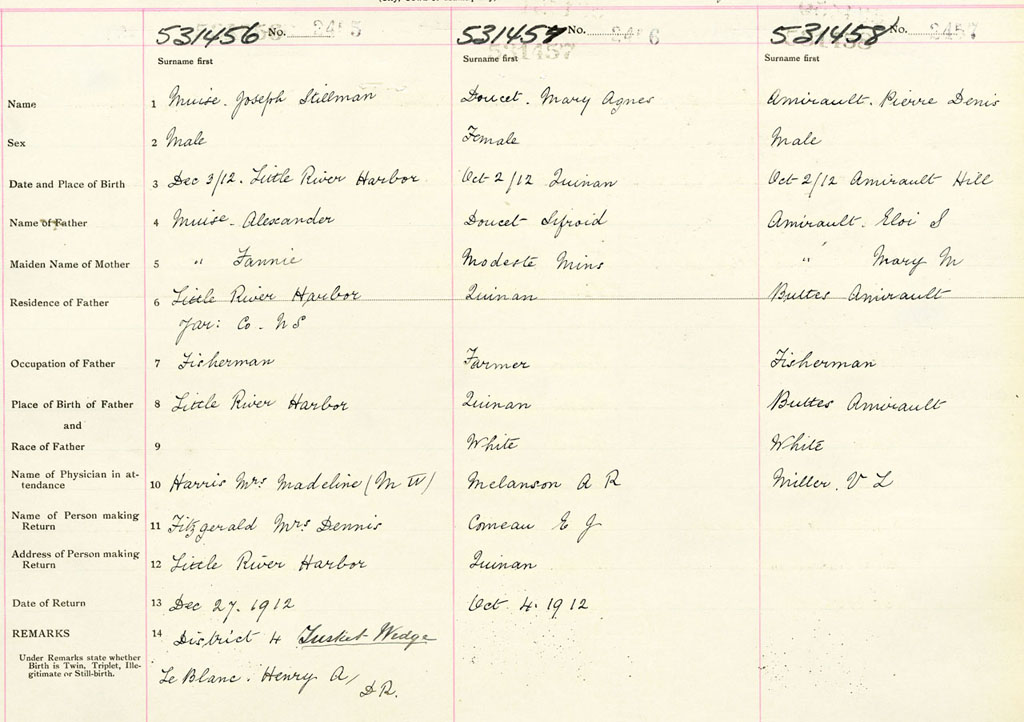 531456 No. 2455
531457 No. 2456
531458 No. 2457
Surname first
Surname first
Surname first
Name 1 Muise. Joseph Stillman
Doucet. Mary Agnes
Amirault. Pierre Denis
Sex 2 Male
Female
Male
Date and Place of Birth 3 Dec 3/12. Little River Harbor
Oct 2/12 Quinan
Oct 2/12 Amirault Hill
Name of Father 4 Muise. Alexander
Doucet Sifroid
Amirault. Eloi S
Maiden Name of Mother 5 " Fannie
Modeste Mins
" Mary M
Residence of Father 6 Little River Harbor
Yar: Co. N S
Quinan
Buttes Amirault
Occupation of Father 7 Fisherman
Farmer
Fisherman
Place of Birth of Father 8 Little River Harbor
Quinan
Buttes Amirault
and
Race of Father 9
White
White
Name of Physician in at-
tendance 10 Harris Mrs Madeline (M W)
Melanson A R
Miller. V L
Name of Person making
Return 11 Fitzgerald Mrs Dennis
Comeau E J
Address of Person making
Return 12 Little River Harbor
Quinan
Date of Return 13 Dec 27. 1912
Oct 4. 1912
REMARKS 14 District 4 Tusket Wedge
Under Remarks state whether
Birth is Twin, Triplet, Ille-
gitimate or Still-birth.
Le Blanc. Henry A,
D R.